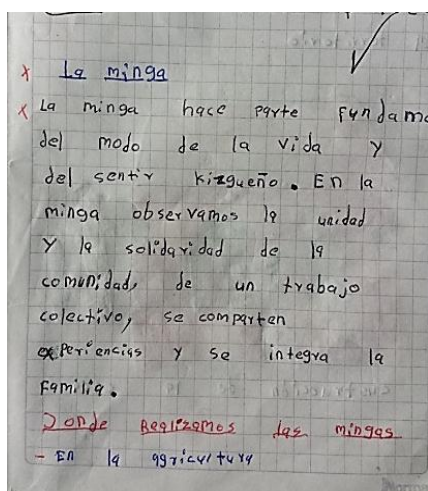 La minga
La minga hace parte fundame
del modo de la vida y
del sentir kizgueño. En la
minga observamos la unidad
y la solidaridad de la
comunidad, de un trabajo
colectivo, se comparten
experiencias y se integra la
Familia.
Donde Realizamos las mingas
- En la agricultura